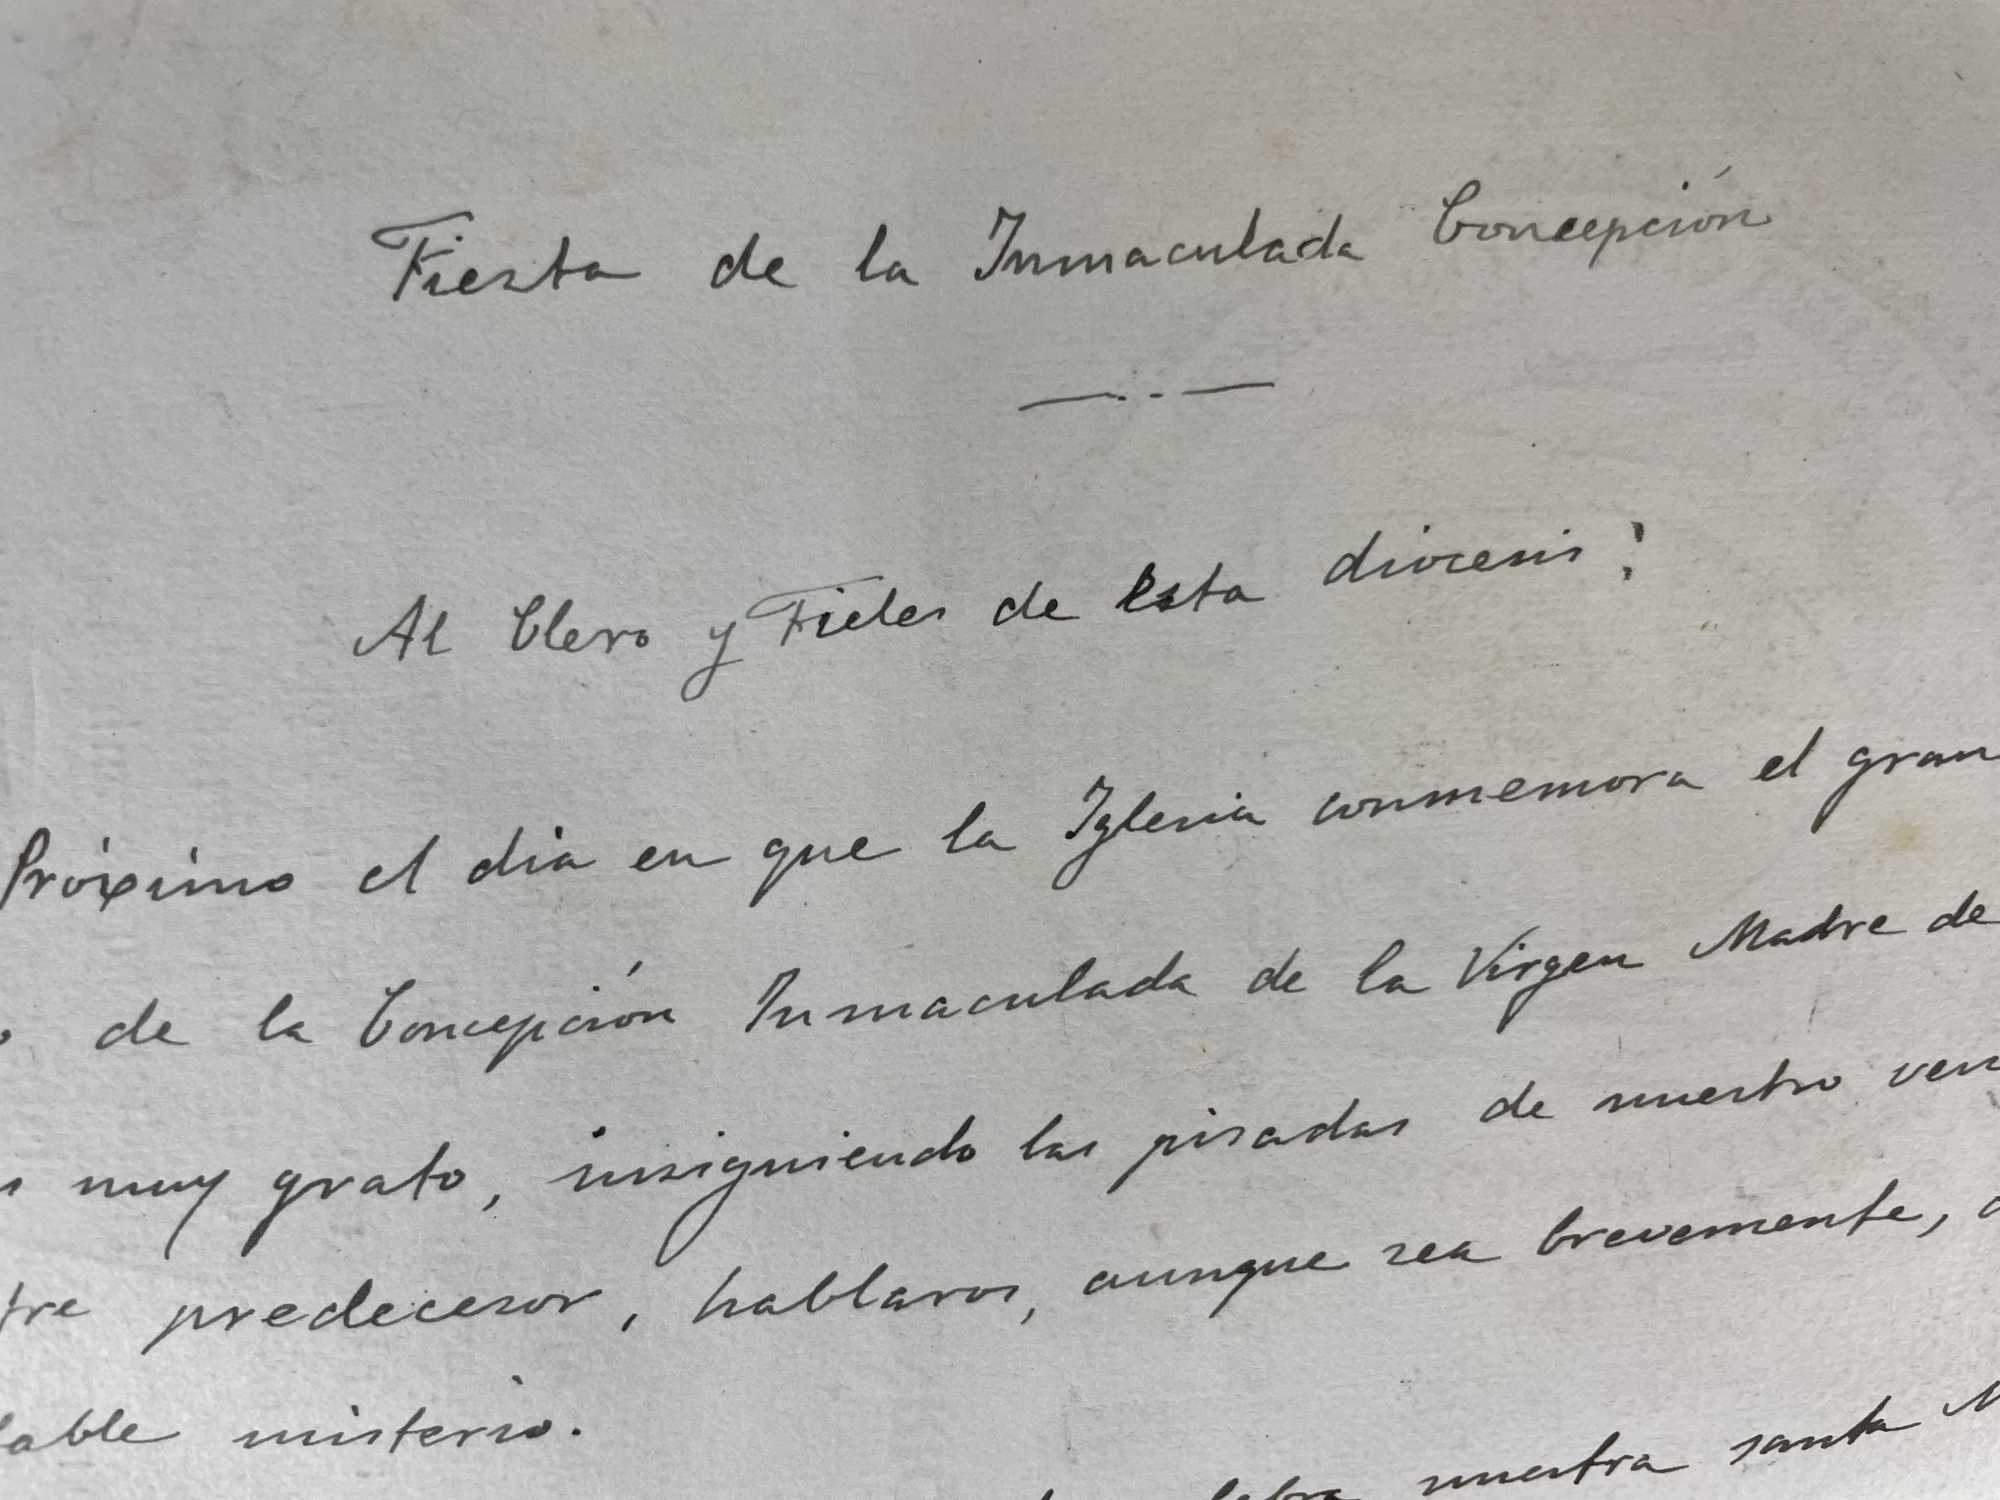 Fiesta de la Inmaculada Concepción
Al Clero y Fieles de esta diocesis:
Próximo el dia en que la Iglesia conmemora el gran
de la Concepción Inmaculada de la Virgen Madre de
muy grato, insiguiendo las pisadas de nuestro ven
tre predecesor, hablaros, aunque sea brevemente,
lable misterio.
nuestra santa M